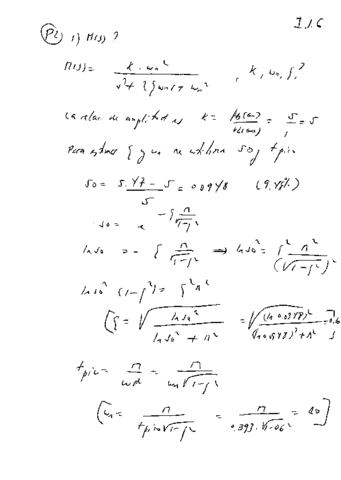 I.I.6
P2) 1) M(s)?
M(s) = k·wn² / s² + 2ξwn s + wn² , k, wn, ξ?
La relac de amplitud es k = = 5/1 = 5
Para estimar ξ y wn se utiliza SO y t pico
SO = 5.47 - 5 / 5 = 0.0948 (9.48%)
SO = e^ -ξ π/√1-ξ²
ln SO = -ξ π/√1-ξ² ⇒ ln SO² = ξ² π²/(√1-ξ²)²
ln SO² (1-ξ²) = ξ² π²
(ξ = √ ln SO² / ln SO² + π² = √ (ln 0.0948)² / (ln 0.0948)² + π² = 0.6]
t pico = π/wd = π / wn√1-ξ²
[wn = π / t pico √1-ξ² = π / 0.393·√1-0.6² = 10]